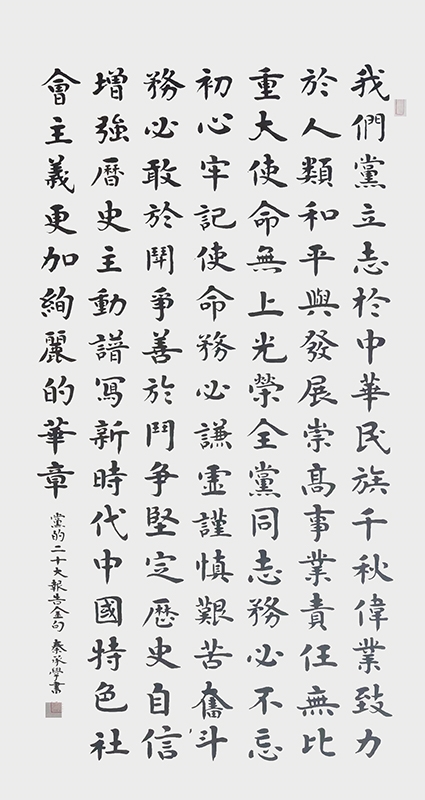 我們黨立志於中華民族千秋偉業致力
於人類和平與發展崇高事業責任無比
重大使命無上光榮全黨同志務必不忘
初心牢記使命務必謙虛謹慎艱苦奮斗
務必敢於鬪爭善於鬥争堅定歷史自信
增強曆史主動譜寫新時代中國特色社
會主義更加絢麗的華章
黨的二十大報告金句 秦承學書